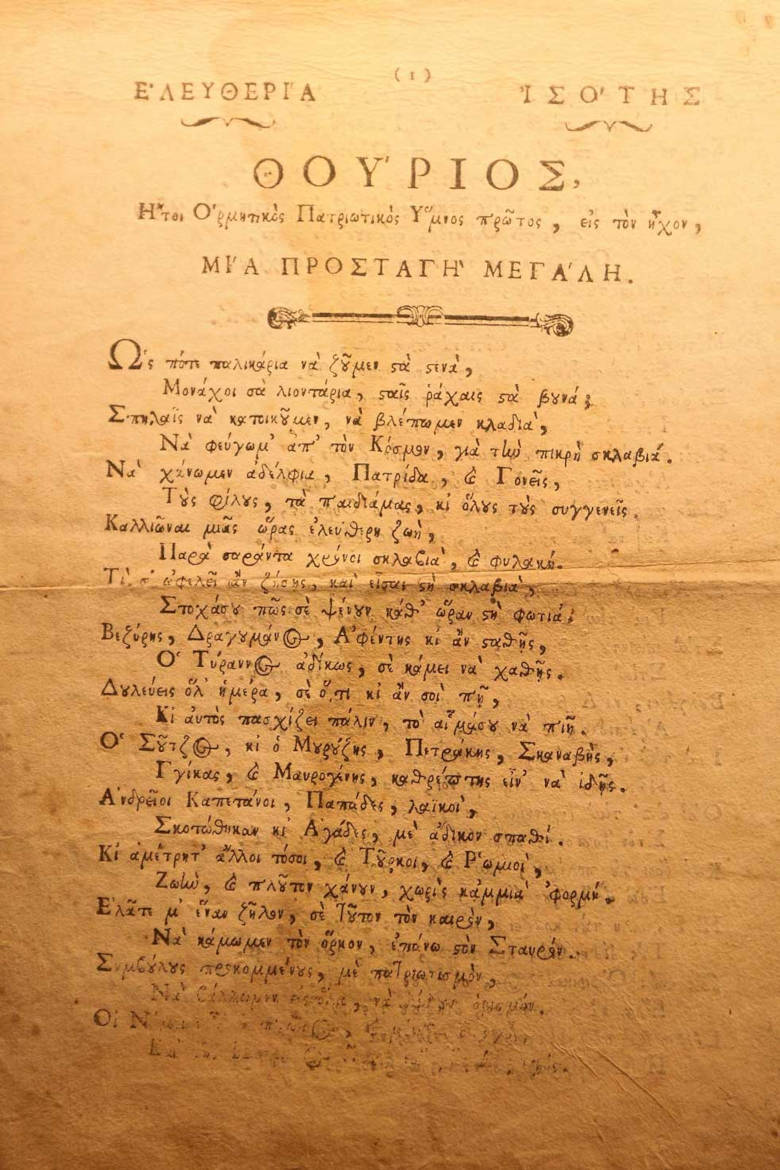 (1)
Ε᾿ΛΕΥΘΕΡΙ´Α ἸΣΟ´ΤΗΣ
ΘΟΥ´ΡΙΟΣ,
Η῎τοι Ο῾ρμητικὸς Πατριωτικὸς Υ῞μνος πρῶτος, εἰς τὸν ἦχον,
ΜΙ´Α ΠΡΟΣΤΑΓΗ` ΜΕΓΑ´ΛΗ.
Ω῾ς πότε παλικάρια νὰ ζȣ͂μεν ϛὰ ϛενὰ,
Μονάχοι σὰ λιοντάρια, ϛαῖς ῥάχαις ϛὰ βȣνά;
Σπηλαῖς νὰ κατοικȣ͂μεν, νὰ βλέπωμεν κλαδιὰ,
Νὰ φεύγωμ᾿ ἀπ᾿ τὸν Κόσμον, γιὰ τὴν πικρὴ σκλαβιά.
Νὰ χάνωμεν ἀδέλφια, Πατρίδα, ϗ Γονεῖς,
Τȣ̀ς φίλȣς, τὰ παιδιάμας, κι ὅλȣς τȣ̀ς συγγενεῖς.
Καλλιῶναι μιᾶς ὥρας ἐλεύθερη ζωὴ,
Παρὰ σαράντα χρόνοι σκλαβιὰ, ϗ φυλακή.
Τὶ σ᾿ ὠφελεῖ ἂν ζήσῃς, καὶ εἶσαι ϛὴ σκλαβιὰ,
Στοχάσȣ πῶς σὲ ψένȣν καθ᾿ ὥραν ϛὴ φωτιά.
Βεζύρης, Δραγȣμάνος, Α᾿φέντης κι ἂν ϛαθῇς,
Ο῾ Τύραννος ἀδίκως, σὲ κάμει νὰ χαθῇς.
Δȣλεύεις ὅλ᾿ ἡμέρα, σὲ ὅ,τι κι ἂν σοὶ πῇ,
Κι αὐτὸς πασχίζει πάλιν, τὸ αἷμάσȣ νὰ πιῇ.
Ο῾ Σȣ͂τζος, κι ὁ Μȣρȣ́ζης, Πετράκης, Σκαναβὴς,
Γγίκας, ϗ Μαυρογένης, καθρέπτης εἶν᾿ νὰ ἰδῇς.
Α᾿νδρεῖοι Καπετάνοι, Παπάδες, λαϊκοὶ,
Σκοτώθηκαν κι᾿ Α᾿γάδες, μὲ ἄδικον σπαθί.
Κι ἀμέτρητ᾿ ἄλλοι τόσοι, ϗ Τȣ͂ρκοι, ϗ Ρ῾ωμιοὶ,
Ζωὴν, ϗ πλȣ͂τον χάνȣν, χωρὶς κᾀμμιὰ ᾿φορμή.
Ε᾿λᾶτε μ᾿ ἕναν ζῆλον, σὲ τȣ͂τον τὸν καιρὸν,
Νὰ κάμωμεν τὸν ὅρκον, ἐπάνω ϛὸν Σταυρόν.
Συμβȣ́λȣς προκομμένȣς, μὲ πατριωτισμὸν,
Νὰ βάλλωμεν εἰς ὅλα, νὰ δίδȣν ὁρισμόν.
Οἱ